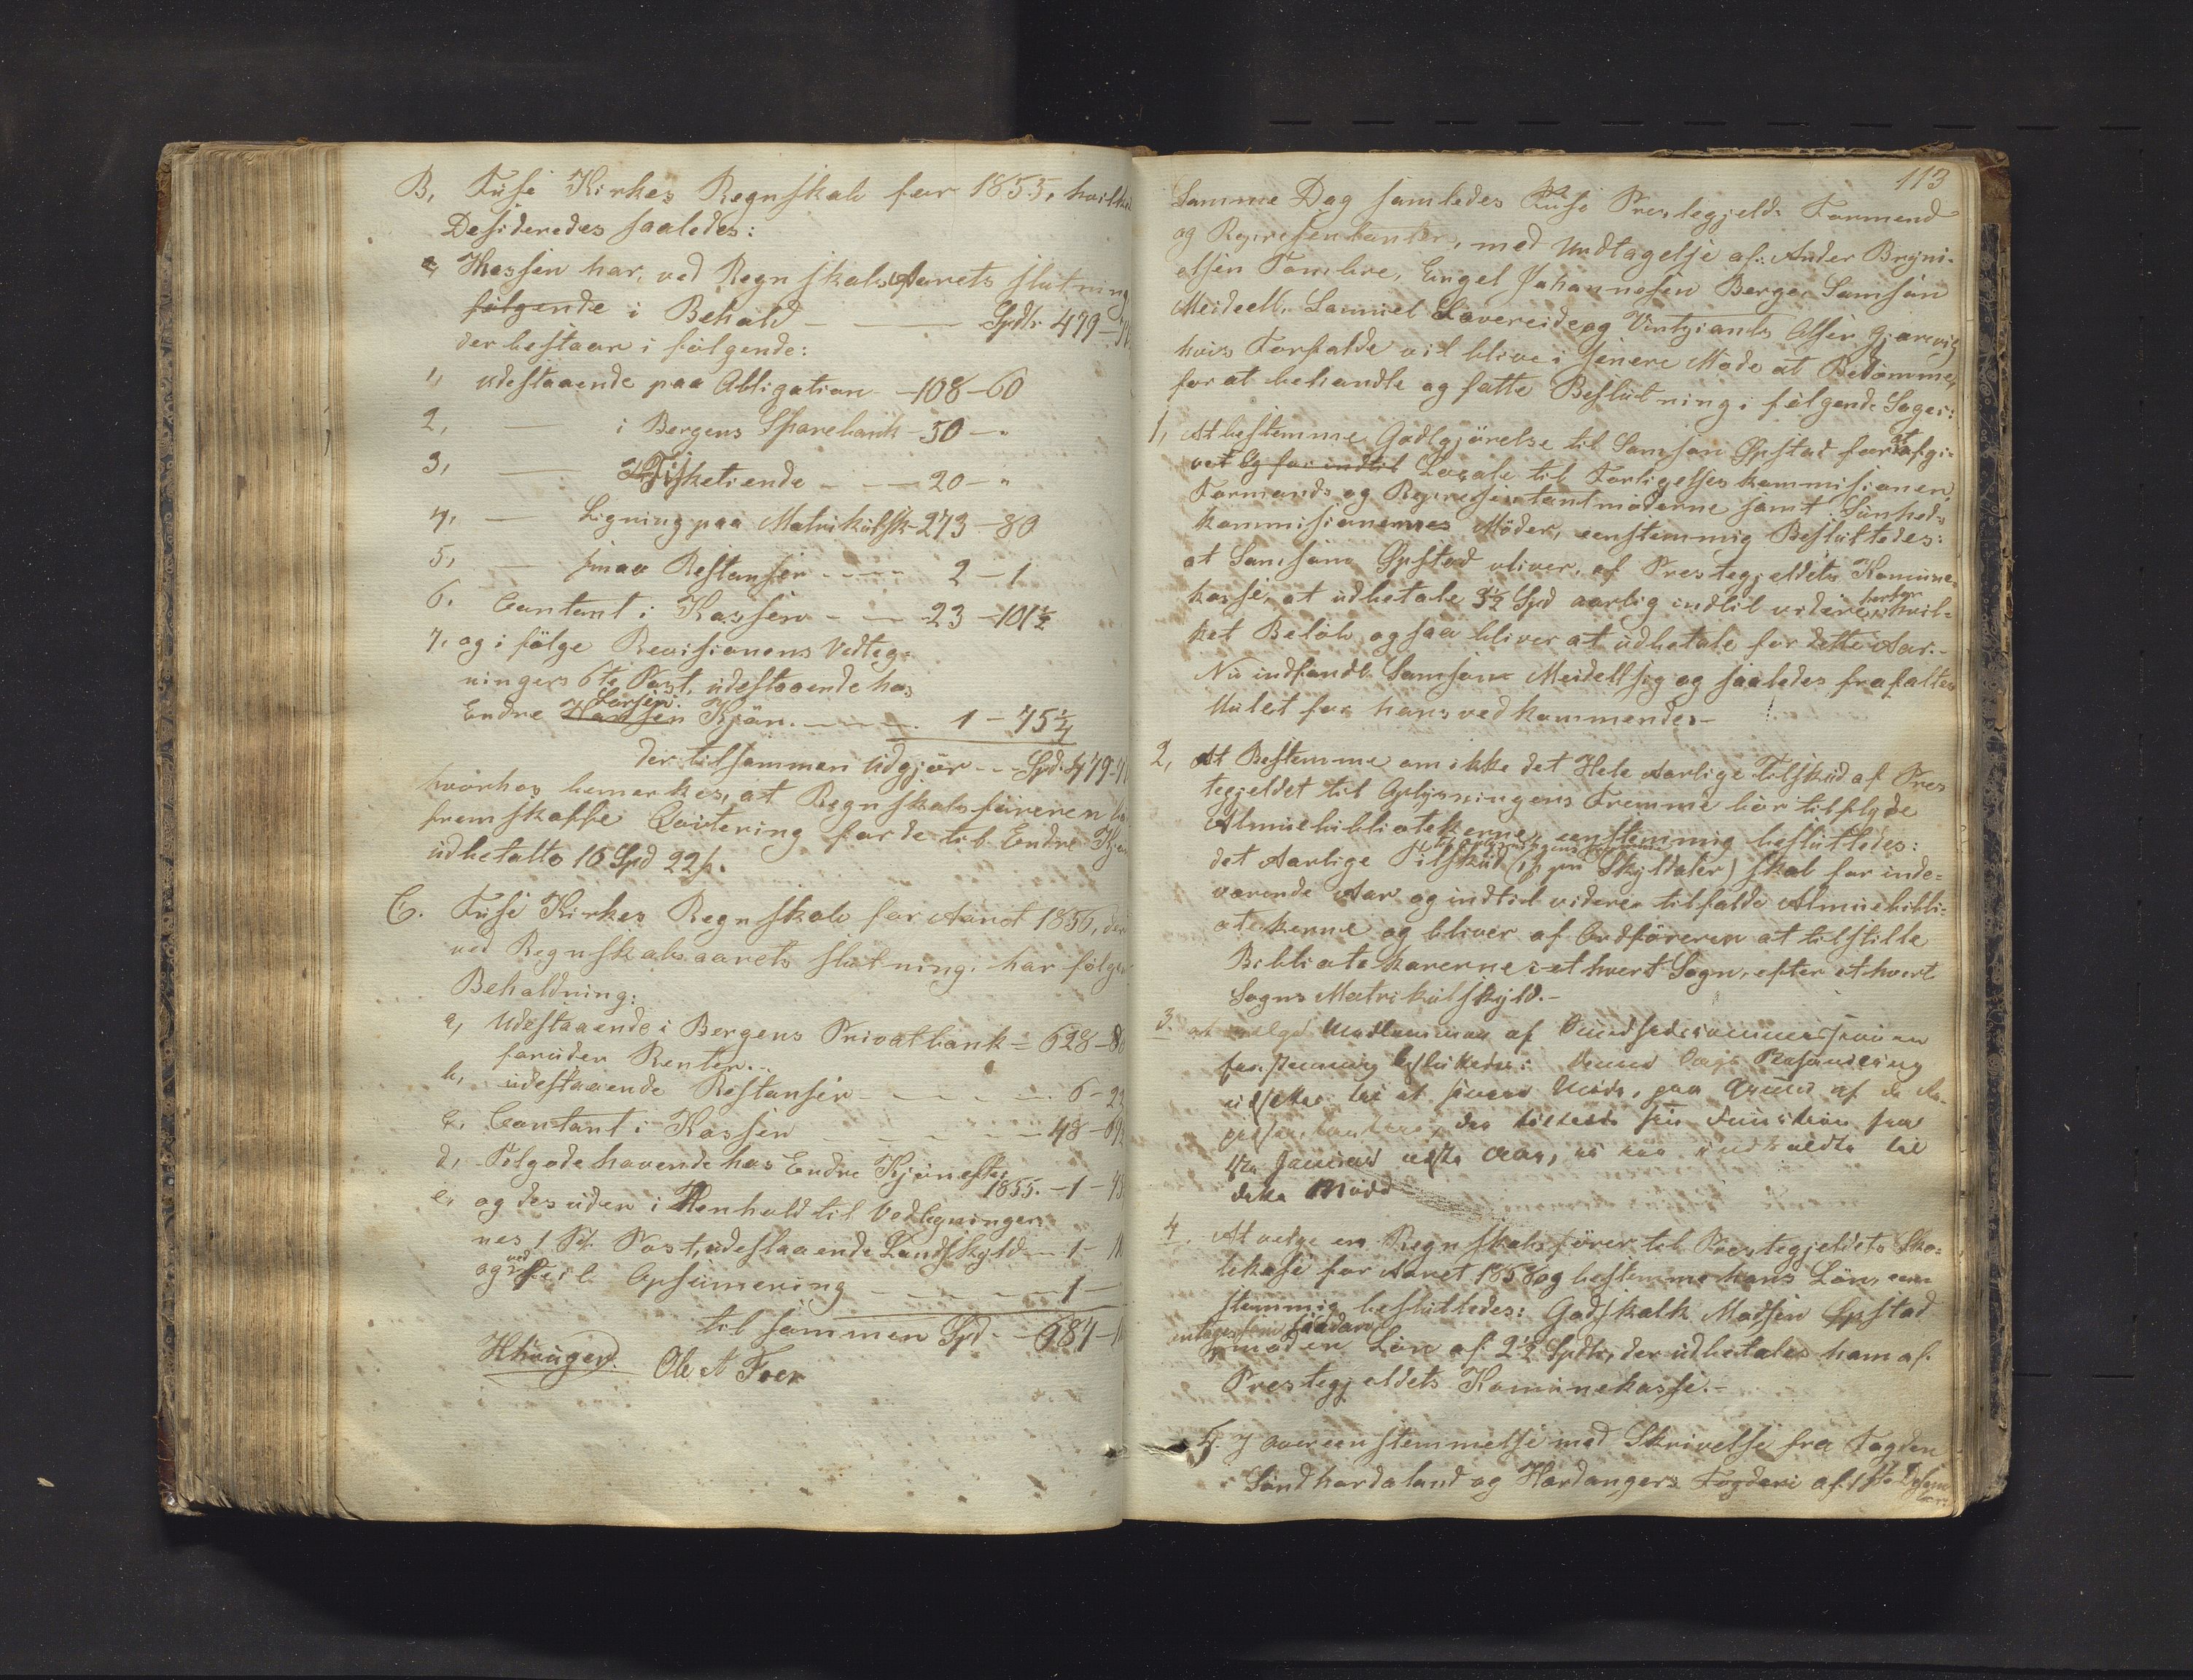 B, Fuse Kirkes Regnskab for 1855, hvilket
Desideredes saaledes:
a, Kassen har, ved Regnskabs Aarets slutning
følgende i Behold — Spdlr 479–
der bestaar i følgende:
1, udestaaende paa Obligation — 108–60
2, — i Bergens Sparebank – 50 – "
3, — Fisketiende — 20 – "
4, — Ligning paa Matrikulsk – 273 – 80
5, — smaa Restanser — 2 – 1
6. Contant i Kassen — 23 – 101½
7, og i følge Revisionens Vedteg-
ningers 6te Post, udestaaende hos
Larsen
Endre Hansen Kjøn. — 1 – 75¼
der tilsammen udgjør — Spd. 479–
hvorhos bemerkes, at Regnskabsføreren
fremskaffe Qvitering for de til Endre
udbetalte 16 Spd 22 s.
C. Fuse Kirkes Regnskab for Aaret 1856, der
ved Regnskabsaarets slutning. har følgende
Behaldning:
a, Udestaaende i Bergens Privatbank = 628 –
foruden Renter..
b, udestaaende Restanser — 6 –
c, Contant i Kassen — 48 –
d, Tilgodehavende hos Endre Kjøn efter
1855. – 1 –
e, og desuden i Henhold til Vedtegninger-
nes 1 Pt. Post, udestaaende Landskyld — 1 –
ved
og Feil Opsumering — 1 –
til sammen Spd. — 684 –
HHaugen Ole A Toer
113
Samme Dag samledes Fuse Prestegjelds Formend
og Representanter, med Undtagelse af: Ander Bryni-
elsen Tombre, Engel Johannesen Berge, Samson
Meidell, Samuel Lovereide og Vintgiants Olsen Gjerevig
hvis Forfald vil blive i senere Møde at Bedømme,
for at behandle og fatte Beslutning i følgende Sager:
1, At bestemme Godtgjørelse til Samson Opstad for at afgi-
vet Lokale til Forligelseskommissionen,
Formands og Representantmøderne samt Sunheds
kommissionernes Møder, eenstemmig Besluttedes:
at Samson Opstad bliver, af Prestegjeldets Komune-
kasse, at udbetale 3½ Spd aarlig indtil videre, herfor hvil-
ket Beløb ogsaa bliver at udbetale for dette Aar. –
Nu indfandt Samson Meidell sig og saaledes frafaltes
Mulct for hans vedkommende –
2, At Bestemme om ikke det Hele Aarlige Tilskud af Pres
tegjeldet til Oplysningens Fremme bør tilflyde
Almuebibliotekerne, eenstemmig besluttedes:
til Oplysningens Fremme
det Aarlige Tilskud (1 s. pr Skylddaler) skal for inde-
værende Aar og indtil videre tilfalde Almuebibli-
otekerne og bliver af Ordføreren at tilstille
Bibliotekarerne i et hvert Sogn, efter et hvert
Sogns Matrikulskyld. –
3. at velge Medlemmer af Sundhedskommissionen
eenstemmig besluttedes: denne Sags Behandling
udsettes til et senere Møde, paa Grund af de Re-
presentanter, der tiltrede sin Funktion fra
1ste Januar neste Aar, ei ere indkaldte til
dette Møde
4. At velge en Regnskabsfører til Prestegjeldets Sko-
lekasse for Aaret 1858 og bestemme hans Løn, een-
stemmig besluttedes: Godskalk Madsen Opstad
antages som saadan
mod en Løn af 2½ Spdlr, der udbetales ham af
Prestegjeldets Komunekasse. –
5. I Overeenstemmelse med Skrivelse fra Fogden
i Søndhordaland og Hardangers Fogderi af 1ste Desem
ber